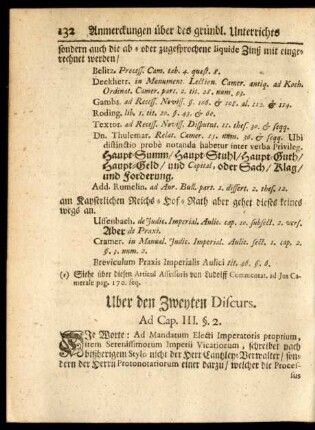 132 Anmerckungen über des gründl. Unterrichts
sondern auch die ab- oder zugesprochene liquide Zinß mit einge-
rechnet werden/
Belitz. Process. Cam. tab. 4. quæst. 8.
Deckherr. in Monument. Lection. Camer. antiq. ad Rech.
Ordinat. Camer. part. 2. tit. 23.
Gambs. ad Recess. Noviss. §. 108. & 112. &
Roding. lib. 1. tit. 20. §. 43. & 60.
Textor. ad Recess. Noviss. Disputat. 11. thes. 30. & seqq.
Dn. Thulemar. Relat. Camer. 23. num. 36. & seqq. Ubi
distinctio probè notanda habetur inter verba Privileg.
Haupt-Summ/ Haupt-Stuhl/ Haupt-Guth/
Haupt-Geld/ und Capital, oder Sach/ Klag/
und Forderung.
Add. Rumelin. ad Aur. Bull. part. 2. dissert. 2. thes. 12.
am Kayserlichen Reichs-Hof-Rath aber gehet dieses keines
wegs an.
Uffenbach. de Judic. Imperial. Aulic. cap. 20. subsect. 2. vers.
Aber de Praxi.
Cramer. in Manual. Judic. Imperial. Aulic. sect. 1. cap. 2.
§. 3. num. 2.
Breviculum Praxis Imperialis Aulici tit. 46. §. 8.
(e) Siehe über diesen Articul Assessoris von Ludolff Commentat. ad Jus Ca-
merale pag. 170. seq.
Uber den Zweyten Discurs.
Ad Cap. III. §. 2.
Die Worte: Ad Mandatum Electi Imperatoris proprium,
item Serenissimorum Imperii Vicariorum, schreibet nach
bißherigem Stylo nicht der Herr Cantzley-Verwalter/ son-
dern der Herrn Protonotariorum einer darzu/ welcher die Proces-
sus